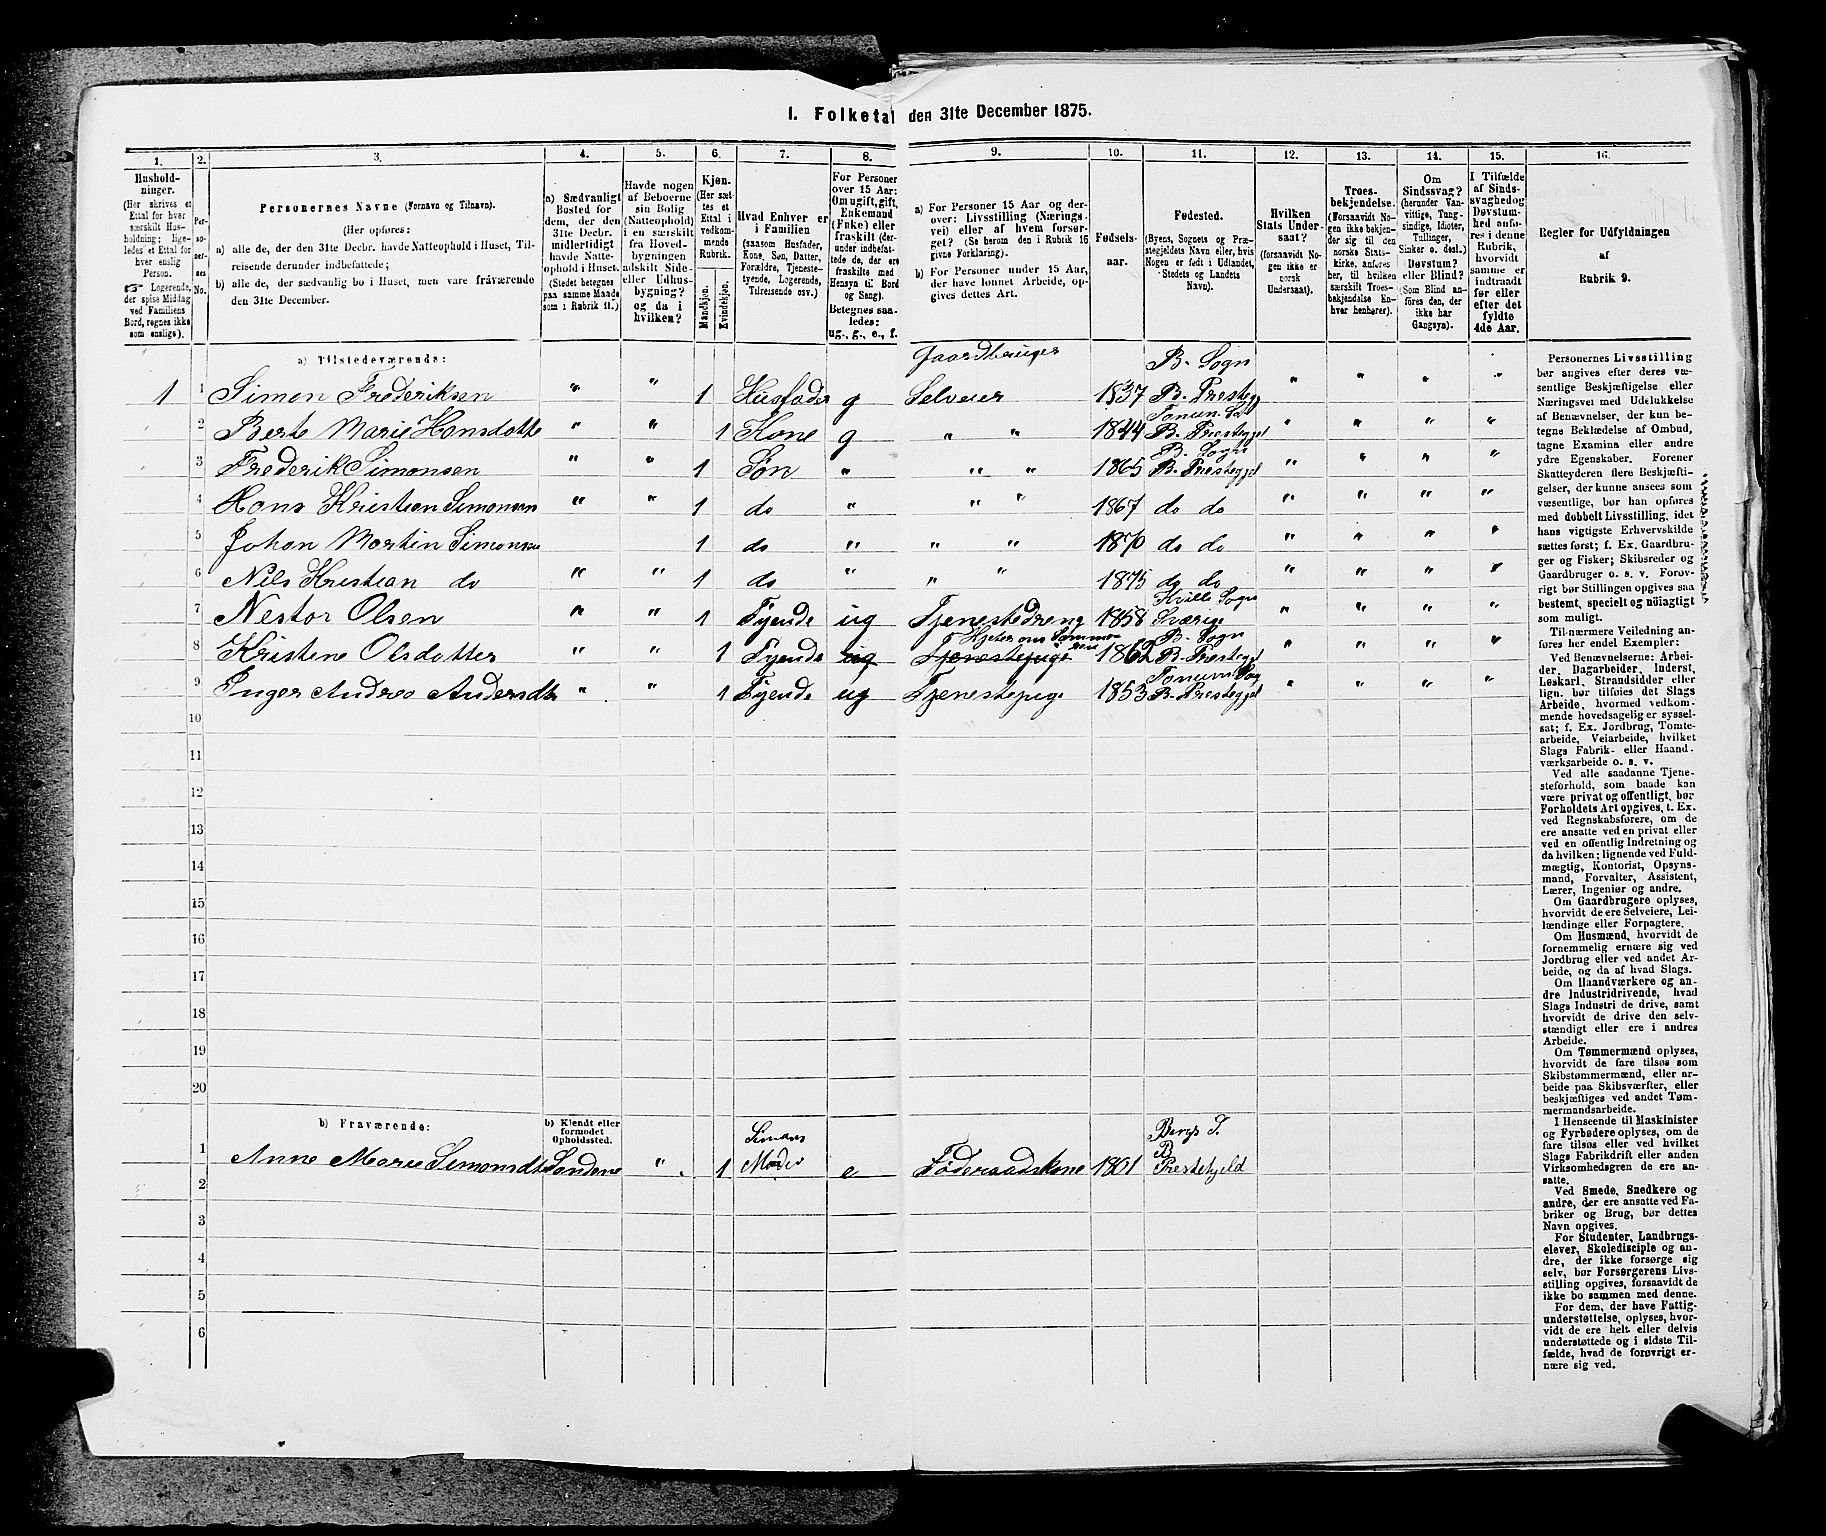 I. Folketal den 31te December 1875.
1.
2.
3.
4.
5.
6.
7.
8.
9.
10.
11.
12.
13.
14.
15.
16.
Hushold-
ninger.
(Her skrives et
Ettal for hver
særskilt Hus-
holdning; lige-
ledes et Ettal for
hver enslig
Person.
☞ Logerende,
der spise Middag
ved Familiens
Bord, regnes ikke
som enslige).
Per-
so-
ner-
nes
No.
Personernes Navne (Fornavn og Tilnavn).
(Her opføres:
a) alle de, der den 31te Decbr. havde Natteophold i Huset, Til-
reisende derunder indbefattede;
b) alle de, der sædvanlig bo i Huset, men vare fraværende
den 31te December.
a) Sædvanligt
Bosted for
dem, der den
31te Decbr.
midlertidigt
havde Natte-
ophold i Huset.
(Stedet betegnes
paa samme Maade
som i Rubrik 11.)
Havde nogen
af Beboerne
sin Bolig
(Natteophold)
i en særskilt
fra Hoved-
bygningen
adskilt Side-
eller Udhus-
bygning?
og da i
hvilken?
Kjøn.
(Her sæt-
tes et
Ettal i
vedkom-
mende
Rubrik.
Mandkjøn.
Kvindekjøn.
Hvad Enhver er
i Familien
(saasom Husfader,
Kone, Søn, Datter,
Forældre, Tjeneste-
tyende, Logerende,
Tilreisende osv.)
For Personer
over 15 Aar:
Om ugift, gift,
Enkemand
(Enke) eller
fraskilt (der-
under indbefat-
tede de, der ere
fraskilte med
Hensyn til Bord
og Seng).
Betegnes saa-
ledes:
ug., g., e., f.
a) For Personer 15 Aar og der-
over: Livsstilling (Nærings-
vei) eller af hvem forsør-
get? (Se herom den i Rubrik 16
givne Forklaring).
b) For Personer under 15 Aar,
der have lønnet Arbeide, op-
gives dettes Art.
Fødsels-
aar.
Fødested.
(Byens, Sognets og Præ-
stegjeldets Navn eller, hvis
Nogen er født i Udlandet,
Stedets og Landets
Navn).
Hvilken
Stats Under-
saat?
(forsaavidt No-
gen ikke er
norsk
Undersaat).
Troes-
bekjendelse.
(Forsaavidt No-
gen ikke bekjen-
der sig til den
norske Stats-
kirke, anføres
her, til hvilken
særskilt Troes-
bekjendelse En-
hver henhører).
Om
Sindssvag?
(herunder Van-
vittige, Tung-
sindige, Idioter,
Tullinger,
Sinker o. desl.)
Døvstum?
eller Blind?
(Som Blind an-
føres den, der
ikke har
Gangsyn).
I Tilfælde
af Sinds-
svaghed og
Døvstum-
hed anfø-
res i denne
Rubrik,
hvorvidt
samme er
indtraadt
før eller
efter det
fyldte
4de Aar.
Regler for Udfyldningen
af
Rubrik 9.
a) Tilstedeværende:
Gaardbruger B. Sogn
1 1 Simon Frederiksen " " 1 Husfader g Selveier 1837 B. Prestegj " " " "
Tomm. So
2 Berte Marie Hansdotte " " 1 Kone g " " 1844 B. Prestegjel " " " "
B. Sogn
3 Frederik Simonsen " " 1 Søn " " " 1865 B. Prestegjel " " " "
4 Hans Kristian Simonsen " " 1 do " " " 1867 do do " " " "
5 Johan Martin Simonsen 1 do " " " 1870 do do " " " "
6 Nils Kristian do " " 1 do " " " 1875 do do " " " "
Kville Sogn
7 Nestor Olsen " " 1 Tyende ug Tjenestedreng 1858 Sværige " " " "
Gjeter om Somme- B. Sogn
ren
8 Kristine Olsdotter " " 1 Tyende ug Tjenestepige 1862 B. Prestegjel " " " "
9 Inger Andrea Andersdtr " " 1 Tyende ug Tjenestepige 1853 B. Prestegjel " " " "
10
11
12
13
14
15
16
17
18
19
20
b) Fraværende:
b) Kjendt eller
formodet
Opholdssted.
Simons Bergs S.
B
1 Anne Marie Simonsdt Sandene " 1 Moder e Føderaadskone 1801 Prestegjeld
2
3
4
5
6
Personernes Livsstilling
bør angives efter deres væ-
sentlige Beskjæftigelse eller
Næringsvei med Udelukkelse
af Benævnelser, der kun be-
tegne Beklædelse af Ombud,
tagne Examina eller andre
ydre Egenskaber. Forener
Skatteyderen flere Beskjæfti-
gelser, der kunne ansees som
væsentlige, bør han opføres
med dobbelt Livsstilling, idet
hans vigtigste Erhvervskilde
sættes først; f. Ex. Gaardbru-
ger og Fisker; Skibsreder og
Gaardbruger o. s. v. Forøv-
rigt bør Stillingen opgives saa
bestemt, specielt og nøiagtigt
som muligt.
Til nærmere Veiledning an-
føres her endel Exempler:
Ved Benævnelserne: Arbei-
der, Dagarbeider, Inderst,
Løskarl, Strandsidder eller
lign. bør tilføies det Slags
Arbeide, hvormed vedkom-
mende hovedsagelig er syssel-
sat; f. Ex. Jordbrug, Tomte-
arbeide, Veiarbeide, hvilket
Slags Fabrik- eller Haand-
værksarbeide o. s. v.
Ved alle saadanne Tjene-
steforhold, som baade kan
være privat og offentligt, bør
Forholdets Art opgives, t. Ex.
ved Regnskabsførere, om de
ere ansatte ved en privat eller
ved en offentlig Indretning og
da hvilken; lignende ved Fuld-
mægtig, Kontorist, Opsyns-
mand, Forvalter, Assistent,
Lærer, Ingeniør og andre.
Om Gaardbrugere oplyses,
hvorvidt de ere Selveiere, Lei-
lændinge eller Forpagtere.
Om Husmænd, hvorvidt de
fornemmelig ernære sig ved
Jordbrug eller ved andet Ar-
beide, og da af hvad Slags.
Om Haandværkere og an-
dre Industridrivende, hvad
Slags Industri de drive, samt
hvorvidt de drive den selv-
stændigt eller ere i andres
Arbeide.
Om Tømmermænd oplyses,
hvorvidt de fare tilsøs som
Skibstømmermænd, eller ar-
beide paa Skibsværfter, eller
beskjæftiges ved andet Tøm-
mermandsarbeide.
I Henseende til Maskinister
og Fyrbødere oplyses, om de
fare tilsøs eller ved hvilket
Slags Fabrikdrift eller anden
Virksomhedsgren de ere an-
satte.
Ved Smede, Snedkere og
andre, der ere ansatte ved Fa-
briker og Brug, bør dettes
Navn opgives.
For Studenter, Landbrugs-
elever, Skoledisciple og an-
dre, der ikke forsørge sig
selv, bør Forsørgerens Livs-
stilling opgives, forsaavidt de
ikke bo sammen med denne.
For dem, der have Fattig-
understøttelse, oplyses, hvor-
vidt de ere helt eller delvis
understøttede og i sidste Til-
fælde, hvad de forøvrigt er-
nære sig ved.